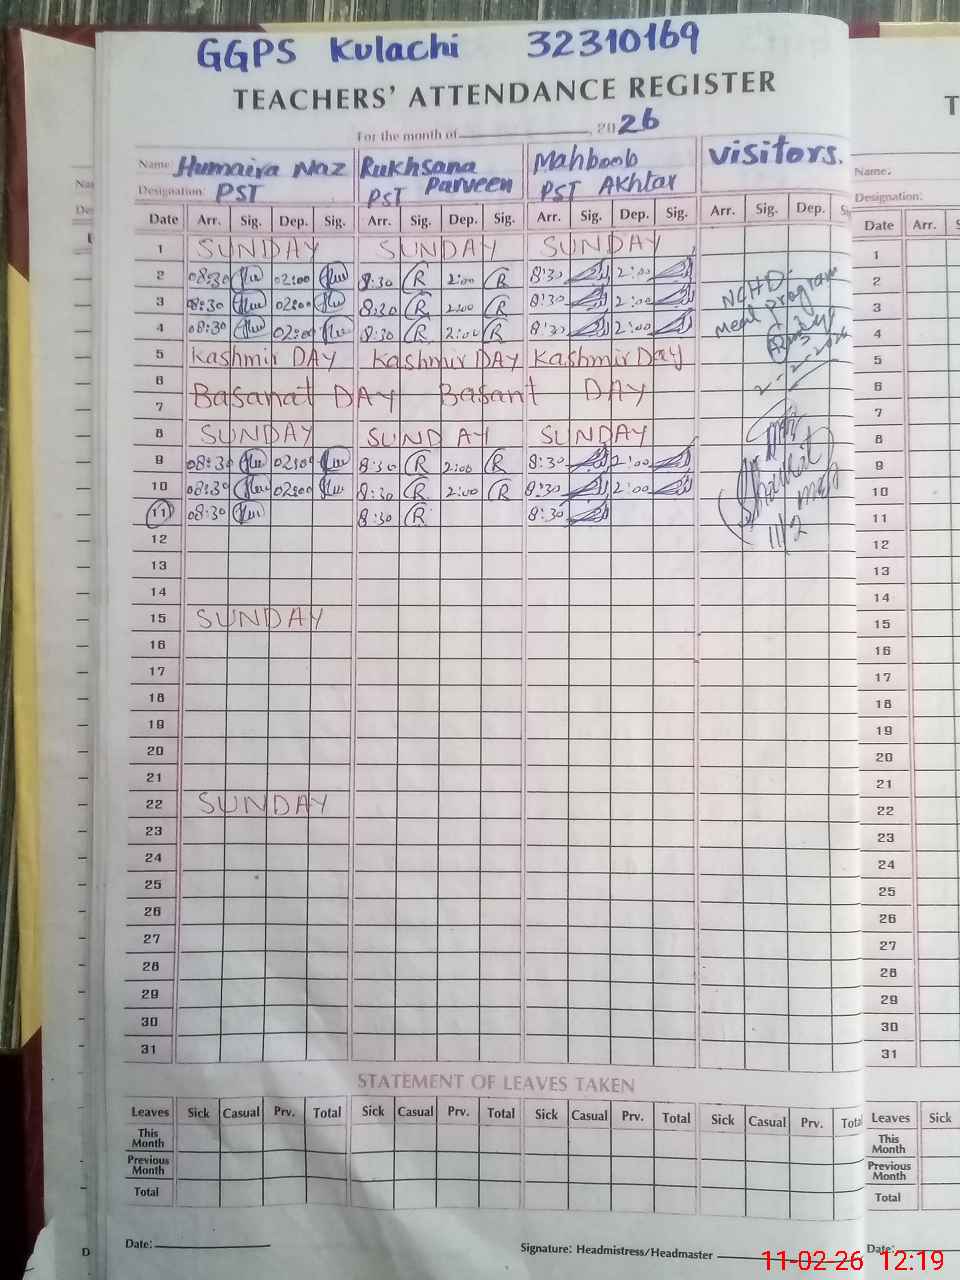 GGPS Kulachi 32310169
TEACHERS' ATTENDANCE REGISTER
For the month of ____________, 2026
Name: Humaira Naz Rukhsana Parveen Mahboob Akhtar Visitors.
Designation: PST PST PST
Date Arr. Sig. Dep. Sig. Arr. Sig. Dep. Sig. Arr. Sig. Dep. Sig. Arr. Sig. Dep.
1 SUNDAY SUNDAY SUNDAY
2 08:30 02:00 8:30 R 2:00 R 8:30 2:00
3 08:30 02:00 8:30 R 2:00 R 8:30 2:00
4 08:30 02:00 8:30 R 2:00 R 8:30 2:00
5 Kashmir DAY Kashmir DAY Kashmir Day
6
7 Basanat DAY Basant DAY
8 SUNDAY SUNDAY SUNDAY
9 08:30 02:00 8:30 R 2:00 R 8:30 2:00
10 08:30 02:00 8:30 R 2:00 R 8:30 2:00
11 08:30 8:30 R 8:30
12
13
14
15 SUNDAY
16
17
18
19
20
21
22 SUNDAY
23
24
25
26
27
28
29
30
31
NCHD
meal program
2-2-2026
Shaukat
11/2
STATEMENT OF LEAVES TAKEN
Leaves Sick Casual Prv. Total Sick Casual Prv. Total Sick Casual Prv. Total Sick Casual Prv. Total
This Month
Previous Month
Total
Date: ____________ Signature: Headmistress/Headmaster ____________
T
Name:
Designation:
Date Arr.
1
2
3
4
5
6
7
8
9
10
11
12
13
14
15
16
17
18
19
20
21
22
23
24
25
26
27
28
29
30
31
Leaves Sick
This Month
Previous Month
Total
Date:
11-02-26 12:19